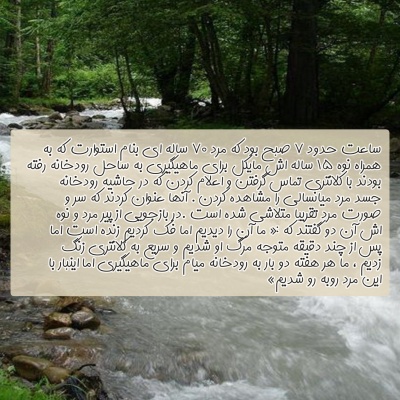 ساعت حدود ۷ صبح بود که مرد ۷۰ ساله ای بنام استوارت که به
همراه نوه ۱۵ ساله اش ، مایکل برای ماهیگیری به ساحل رودخانه رفته
بودند با کلانتری تماس گرفتن و اعلام کردن که در حاشیه رودخانه
جسد مرد میانسالی را مشاهده کردن . آنها عنوان کردند که سر و
صورت مرد تقریبا متلاشی شده است . در بازجویی از پیر مرد و نوه
اش آن دو گفتند که :« ما آن را دیدیم اما فک کردیم زنده است اما
پس از چند دقیقه متوجه مرگ او شدیم و سریع به کلانتری زنگ
زدیم ، ما هر هفته دو بار به رودخانه میام برای ماهیگیری اما اینبار با
این مرد روبه رو شدیم»